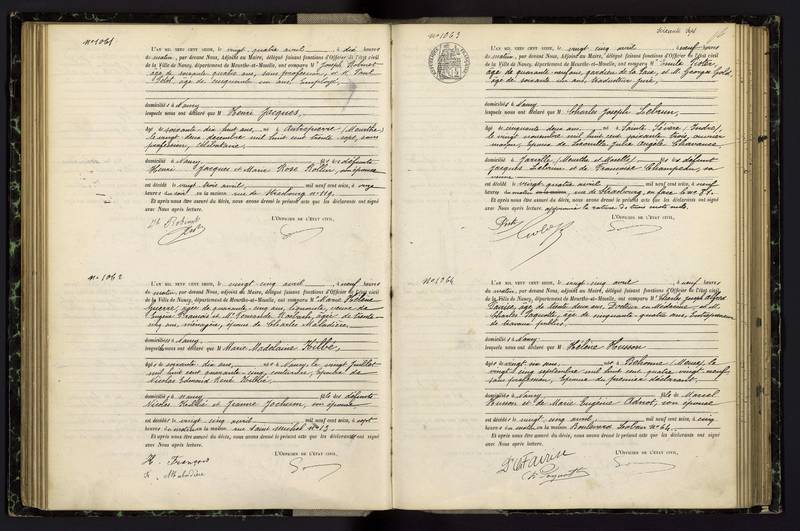 N° 1061
L'AN MIL NEUF CENT SEIZE, le vingt quatre avril, à dix heures
du matin, par devant Nous, Adjoint au Maire, délégué faisant fonctions d'Officier de l'état civil
de la Ville de Nancy, département de Meurthe-et-Moselle, ont comparu M. Joseph
âgé de soixante quatre ans, sans profession, et M. Paul
âgé de cinquante un ans, Employé,
domiciliés à Nancy
lesquels nous ont déclaré que M Henri Jacques,
âgé de soixante-dix huit ans, né à Autrepierre (Meurthe)
le vingt deux décembre mil huit cent trente sept, sans
profession, célibataire,
domicilié à Nancy fils de défunts
Henri Jacques et Marie Rose Rollin, son épouse
est décédé le vingt trois avril mil neuf cent seize, à onze
heures du soir en sa maison rue de Strasbourg n° 119.
Et après nous être assuré du décès, avons dressé le présent acte que les déclarants ont signé
avec Nous après lecture.
L'OFFICIER DE L'ÉTAT CIVIL,
N° 1062
L'AN MIL NEUF CENT SEIZE, le vingt cinq avril, à neuf heures
du matin, par devant Nous, Adjoint au Maire, délégué faisant fonctions d'Officier de l'état civil
de la Ville de Nancy, département de Meurthe-et-Moselle, ont comparu M. Marie
âgée de quarante cinq ans, veuve de
Eugène François et M. âgée de trente
cinq ans, ménagère, épouse de Charles Maladière,
domiciliés à Nancy
lesquels nous ont déclaré que M Marie Madelaine Hilbé,
âgée de soixante dix ans, née à Nancy le vingt juillet
mil huit cent quarante cinq, couturière, épouse de
Nicolas Edmond René
domiciliée à Nancy fille de défunts
Nicolas Hilbé et Jeanne Jochum, son épouse
est décédée le vingt cinq avril mil neuf cent seize, à sept
heures du matin en sa maison rue Saint Michel n° 13
Et après nous être assuré du décès, avons dressé le présent acte que les déclarants ont signé
avec Nous après lecture.
L'OFFICIER DE L'ÉTAT CIVIL,
François
Maladière
Soixante Sept
N° 1063
L'AN MIL NEUF CENT SEIZE, le vingt cinq avril, à neuf heures
du matin, par devant Nous, Adjoint au Maire, délégué faisant fonctions d'Officier de l'état civil
de la Ville de Nancy, département de Meurthe-et-Moselle, ont comparu M. Emile
âgé de quarante neuf ans, gardien de la Paix, et M. Georges
âgé de soixante un ans, traducteur juré,
domiciliés à Nancy
lesquels nous ont déclaré que M Charles Joseph Lebrun,
âgé de cinquante deux ans, né à Sainte Sévère (Indre)
le vingt novembre mil huit cent soixante trois, ouvrier
maçon, époux de Julie Angèle
domicilié à Jarville (Meurthe et Moselle), fils de défunt
Jacques Lebrun et de Françoise Champeau, sa
veuve
est décédé le vingt quatre avril mil neuf cent seize, à neuf
heures du matin rue de Strasbourg, en face le n° 81.
Et après nous être assuré du décès, avons dressé le présent acte que les déclarants ont signé
avec Nous après lecture. approuvé la rature de trois mots nuls.
L'OFFICIER DE L'ÉTAT CIVIL,
N° 1064
L'AN MIL NEUF CENT SEIZE, le vingt cinq avril, à neuf heures
du matin, par devant Nous, Adjoint au Maire, délégué faisant fonctions d'Officier de l'état civil
de la Ville de Nancy, département de Meurthe-et-Moselle, ont comparu M. Charles Joseph
âgé de trente deux ans, Docteur en Médecine, et M.
Charles Paquotte, âgé de cinquante quatre ans, Entrepreneur
de travaux publics,
domiciliés à Nancy
lesquels nous ont déclaré que M Hélène Husson
âgée de vingt six ans, née à Behonne (Meuse) le
vingt cinq septembre mil huit cent quatre vingt neuf
sans profession, épouse du premier déclarant,
domiciliée à Nancy fille de Marcel
Husson et de Marie Eugénie Adnot, son épouse
est décédée le vingt cinq avril, mil neuf cent seize, à cinq
heures du matin, en sa maison Boulevard Lobau n° 64.
Et après nous être assuré du décès, avons dressé le présent acte que les déclarants ont signé
avec Nous après lecture.
L'OFFICIER DE L'ÉTAT CIVIL,